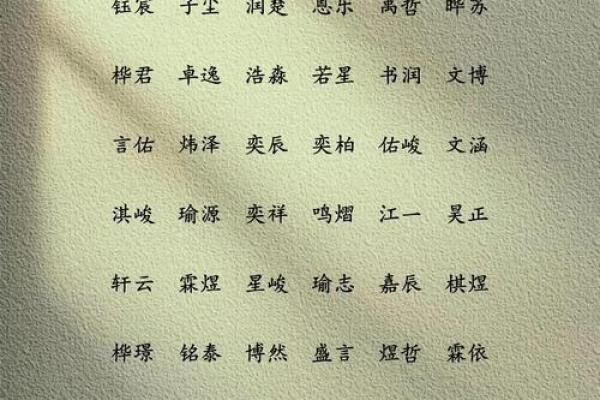 钰宸 子尘 润楚 恩乐 禹哲 晔苏
桦君 卓逸 浩淼 若星 书润 文博
言佑 炜泽 奕辰 奕柏 佑峻 文涵
淇峻 瑜源 奕祥 鸣熠 江一 昊正
轩云 霖煜 星峻 瑜志 嘉辰 棋煜
桦璟 铭泰 博然 盛言 煜哲 霖依